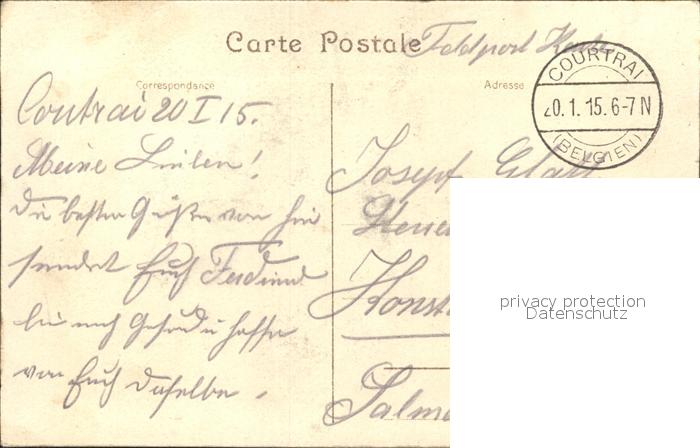 Carte Postale Feldpost Karte
Correspondance
Adresse
COURTRAI
20.1.15.6-7N
(BELGIEN)
Coutrai 20 I 15.
Meine Lieben!
Die besten Grüße von hier
sendet Euch Ferdinand
bin noch Gesund u hoffe
von Euch dasselbe.
Josef
Konst
Salm
privacy protection
Datenschutz